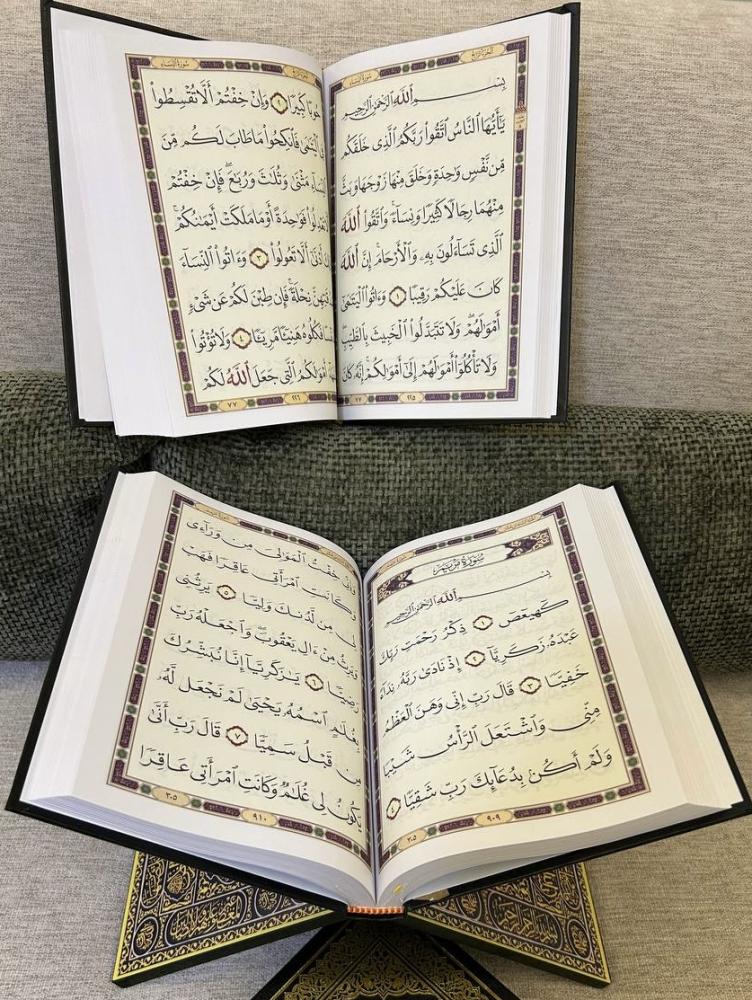 سورة النساء
الجزء الرابع
بِسْمِ ٱللَّهِ ٱلرَّحْمَٰنِ ٱلرَّحِيمِ
يَٰٓأَيُّهَا ٱلنَّاسُ ٱتَّقُوا۟ رَبَّكُمُ ٱلَّذِى خَلَقَكُم
مِّن نَّفْسٍ وَٰحِدَةٍ وَخَلَقَ مِنْهَا زَوْجَهَا وَبَثَّ
مِنْهُمَا رِجَالًا كَثِيرًا وَنِسَآءً ۚ وَٱتَّقُوا۟ ٱللَّهَ
ٱلَّذِى تَسَآءَلُونَ بِهِۦ وَٱلْأَرْحَامَ ۚ إِنَّ ٱللَّهَ
كَانَ عَلَيْكُمْ رَقِيبًا ١ وَءَاتُوا۟ ٱلْيَتَٰمَىٰٓ
أَمْوَٰلَهُمْ ۖ وَلَا تَتَبَدَّلُوا۟ ٱلْخَبِيثَ بِٱلطَّيِّبِ ۖ
وَلَا تَأْكُلُوٓا۟ أَمْوَٰلَهُمْ إِلَىٰٓ أَمْوَٰلِكُمْ ۚ إِنَّهُۥ كَانَ
٢٢٥ ٧٧
سورة النساء
حُوبًا كَبِيرًا ٢ وَإِنْ خِفْتُمْ أَلَّا تُقْسِطُوا۟
ٱلْيَتَٰمَىٰ فَٱنكِحُوا۟ مَا طَابَ لَكُم مِّنَ
ٱلنِّسَآءِ مَثْنَىٰ وَثُلَٰثَ وَرُبَٰعَ ۖ فَإِنْ خِفْتُمْ
تَعْدِلُوا۟ فَوَٰحِدَةً أَوْ مَا مَلَكَتْ أَيْمَٰنُكُمْ ۚ
أَدْنَىٰٓ أَلَّا تَعُولُوا۟ ٣ وَءَاتُوا۟ ٱلنِّسَآءَ
صَدُقَٰتِهِنَّ نِحْلَةً ۚ فَإِن طِبْنَ لَكُمْ عَن شَىْءٍ
نَفْسًا فَكُلُوهُ هَنِيٓـًٔا مَّرِيٓـًٔا ٤ وَلَا تُؤْتُوا۟
أَمْوَٰلَكُمُ ٱلَّتِى جَعَلَ ٱللَّهُ لَكُمْ
٧٧ ٢٢٦
سُورَةُ مَرْيَمَ
بِسْمِ ٱللَّهِ ٱلرَّحْمَٰنِ ٱلرَّحِيمِ
كٓهيعٓصٓ ١ ذِكْرُ رَحْمَتِ رَبِّكَ
عَبْدَهُۥ زَكَرِيَّآ ٢ إِذْ نَادَىٰ رَبَّهُۥ نِدَآءً
خَفِيًّا ٣ قَالَ رَبِّ إِنِّى وَهَنَ ٱلْعَظْمُ
مِنِّى وَٱشْتَعَلَ ٱلرَّأْسُ شَيْبًا
وَلَمْ أَكُنۢ بِدُعَآئِكَ رَبِّ شَقِيًّا ٤
٩٠٩ ٣٠٥
وَإِنِّى خِفْتُ ٱلْمَوَٰلِىَ مِن وَرَآءِى
وَكَانَتِ ٱمْرَأَتِى عَاقِرًا فَهَبْ
لِى مِن لَّدُنكَ وَلِيًّا ٥ يَرِثُنِى
وَيَرِثُ مِنْ ءَالِ يَعْقُوبَ ۖ وَٱجْعَلْهُ رَبِّ
رَضِيًّا ٦ يَٰزَكَرِيَّآ إِنَّا نُبَشِّرُكَ
بِغُلَٰمٍ ٱسْمُهُۥ يَحْيَىٰ لَمْ نَجْعَل لَّهُۥ
مِن قَبْلُ سَمِيًّا ٧ قَالَ رَبِّ أَنَّىٰ
يَكُونُ لِى غُلَٰمٌ وَكَانَتِ ٱمْرَأَتِى عَاقِرًا
٣٠٥ ٩١٠